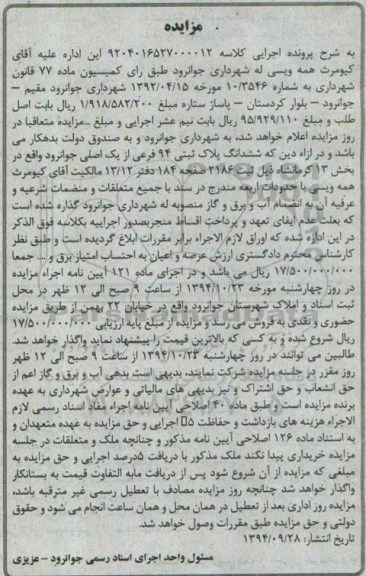 مزایده
به شرح پرونده اجرایی کلاسه ۹۲۰۴۰۱۶۵۲۷۰۰۰۰۱۲ این اداره علیه آقای
کیومرث همه ویسی له شهرداری جوانرود طبق رای کمیسیون ماده ۷۷ قانون
شهرداری به شماره ۱۰/۳۵۴۶ مورخه ۱۳۹۲/۰۴/۱۵ شهرداری جوانرود مقیم –
جوانرود – بلوار کردستان – پاساژ ستاره مبلغ ۱/۹۱۸/۵۸۲/۲۰۰ ریال بابت اصل
طلب و مبلغ ۹۵/۹۲۹/۱۱۰ ریال بابت نیم عشر اجرایی و مبلغ ..مزایده متعاقبا در
روز مزایده اعلام خواهد شد، به شهرداری جوانرود و به صندوق دولت بدهکار می
باشد و در ازاء دین که ششدانگ پلاک ثبتی ۹۴ فرعی از یک اصلی جوانرود واقع در
بخش ۱۳ کرمانشاه ذیل ثبت ۲۱۸۶ صفحه ۱۸۴ دفتر ۱۳/۱۲ مالکیت آقای کیومرث
همه ویسی با حدودات اربعه مندرج در سند با جمیع متعلقات و منضمات شرعیه و
عرفیه آن به انضمام آب و برق و گاز منصوبه له شهرداری جوانرود گذاره شده است
که بعلت عدم ایفای تعهد و پرداخت اقساط منجربصدور اجراییه بکلاسه فوق الذکر
در این اداره شده که اوراق لازم الاجراء برابر مقررات ابلاغ گردیده است و طبق نظر
کارشناس محترم دادگستری ارزش عرصه و اعیان به احتساب امتیاز برق و ... جمعا
۱۷/۵۰۰/۰۰۰/۰۰۰ ریال می باشد و در اجرای ماده ۱۲۱ آیین نامه اجراء مزایده
در روز چهارشنبه مورخه ۱۳۹۴/۱۰/۲۳ از ساعت ۹ صبح الی ۱۲ ظهر در محل
ثبت اسناد و املاک شهرستان جوانرود واقع در خیابان ۲۲ بهمن از طریق مزایده
حضوری و نقدی به فروش می رسد و مزایده از مبلغ پایه ارزیابی ۱۷/۵۰۰/۰۰۰/۰۰۰
ریال شروع شده و به کسی که بالاترین قیمت را پیشنهاد نماید واگذار خواهد شد.
طالبین می توانند در روز چهارشنبه ۱۳۹۴/۱۰/۲۳ از ساعت ۹ صبح الی ۱۲ ظهر
روز مقرر در جلسه مزایده شرکت نمایند، بدیهی است بدهی آب و برق و گاز اعم از
حق انشعاب و حق اشتراک و نیز بدیهی های مالیاتی و عوارض شهرداری به عهده
برنده مزایده است و طبق ماده ۴۰ اصلاحی آیین نامه اجراء مفاد اسناد رسمی لازم
الاجراء هزینه های بازداشت و حفاظت ۵ اجرایی و حق مزایده به عهده متعهدان و
به استناد ماده ۱۲۶ اصلاحی آیین نامه مذکور و چنانچه ملک و متعلقات در جلسه
مزایده خریداری پیدا نکند ملک مذکور با دریافت ۵درصد اجرایی و حق مزایده به
مبلغی که مزایده از آن شروع شود پس از دریافت مابه التفاوت قیمت به بستانکار
واگذار خواهد شد چنانچه روز مزایده مصادف با تعطیل رسمی غیر مترقبه باشد،
مزایده روز اداری بعد از تعطیل در همان محل و همان ساعت انجام می شود و حقوق
دولتی و حق مزایده طبق مقررات وصول خواهد شد.
تاریخ انتشار: ۱۳۹۴/۰۹/۲۸
مسئول واحد اجرای اسناد رسمی جوانرود – عزیزی